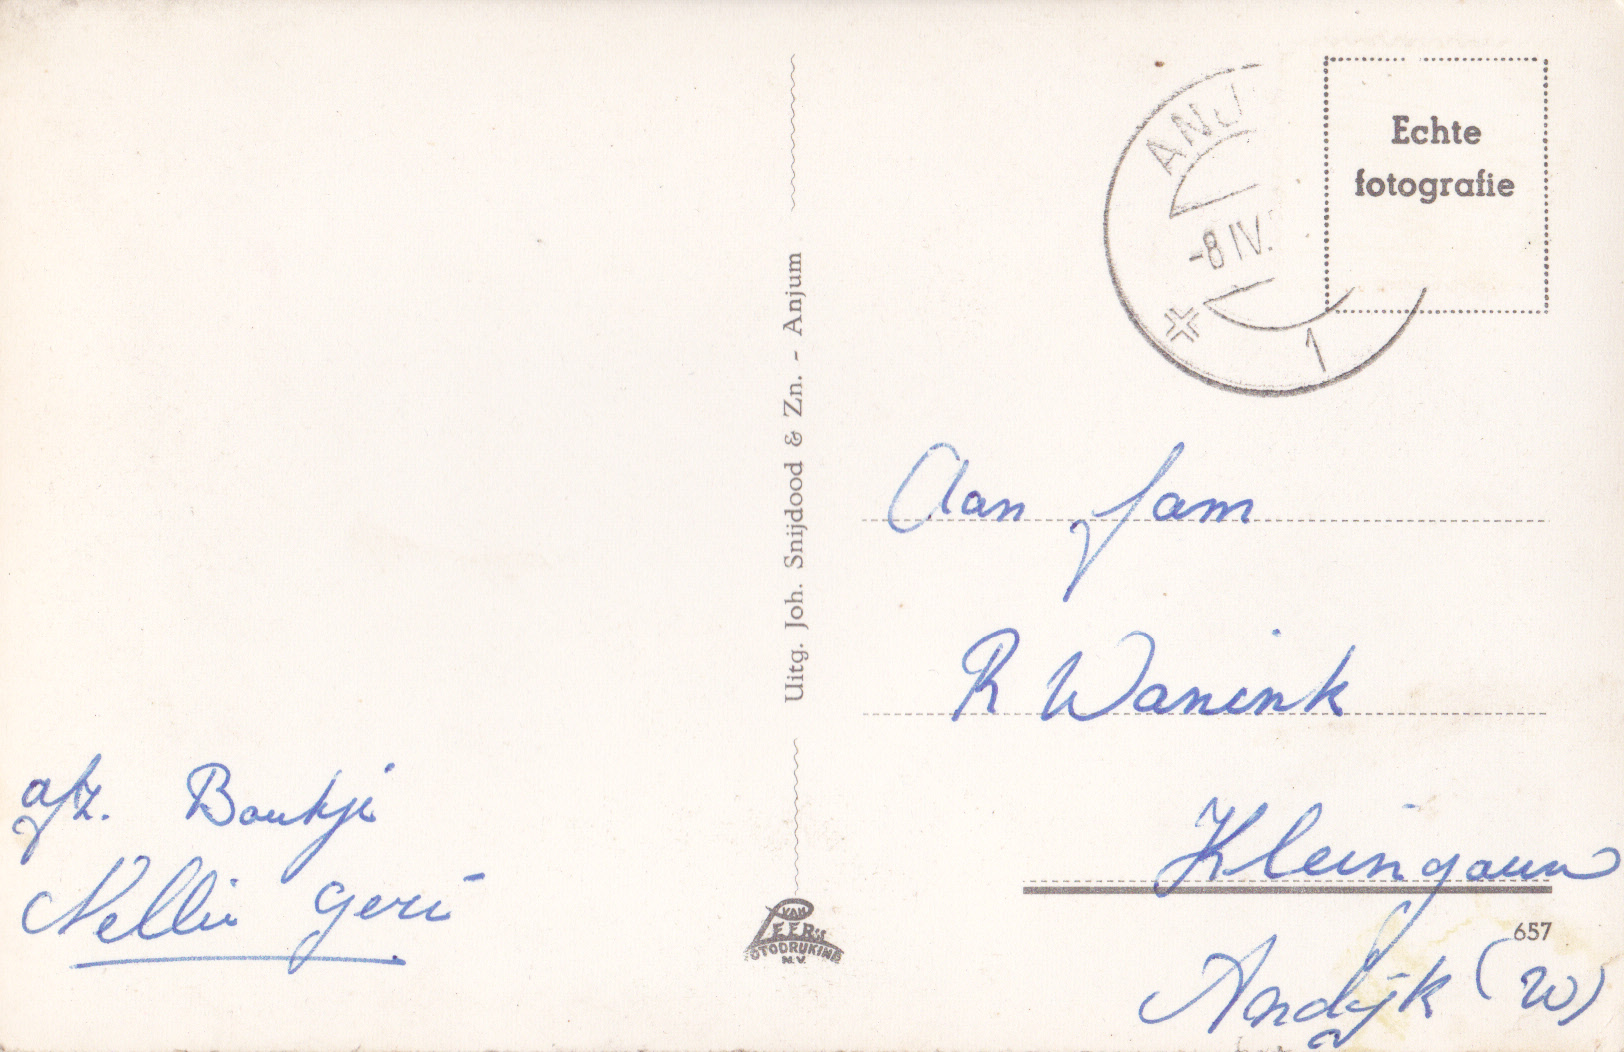 ANJ
-8 IV.
1
Echte
fotografie
Uitg. Joh. Snijdood & Zn. - Anjum
Aan fam
R Wanink
Kleingouw
Andijk (W)
657
afz. Boukje
Nellie Geri
VAN
LEER's
FOTODRUKINR
N.V.